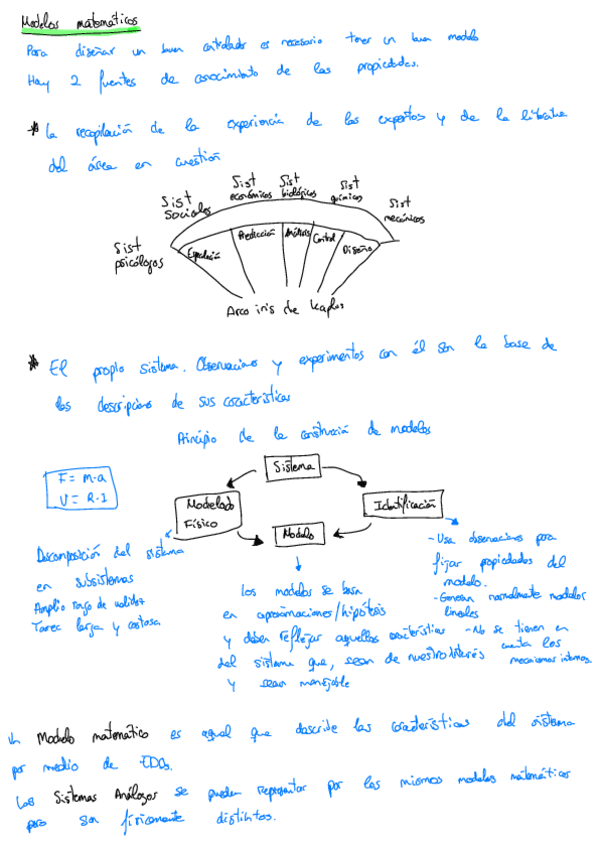 Modelos matemáticos
Para diseñar un buen controlador es necesario tener un buen modelo
Hay 2 fuentes de conocimiento de las propiedades.
* La recopilación de la experiencia de los expertos y de la literatura
del área en cuestión
Sist psicólogos
Sist sociales
Sist económicos
Sist biológicos
Sist químicos
Sist mecánicos
Especulación
Predicción
Análisis
Control
Diseño
Arco iris de Kaplus
* El propio sistema. Observaciones y experimentos con él son la base de
las descripciones de sus características
Principio de la construcción de modelos
Sistema
F = m·a
V = R·I
Modelado
Físico
Identificación
Modelo
Descomposición del sistema
en subsistemas
Amplio rango de validez
Tarea larga y costosa
Los modelos se basan
en aproximaciones/hipótesis
y deben reflejar aquellas características
del sistema que, sean de nuestro interés
y sean manejable
- Usa observaciones para
fijar propiedades del
modelo.
- Generan normalmente modelos
lineales
- No se tienen en
cuenta los
mecanismos internos.
Un Modelo matemático es aquel que describe las características del sistema
por medio de EDOs.
Los Sistemas Análogos se pueden representar por los mismos modelos matemáticos
pero son físicamente distintos.